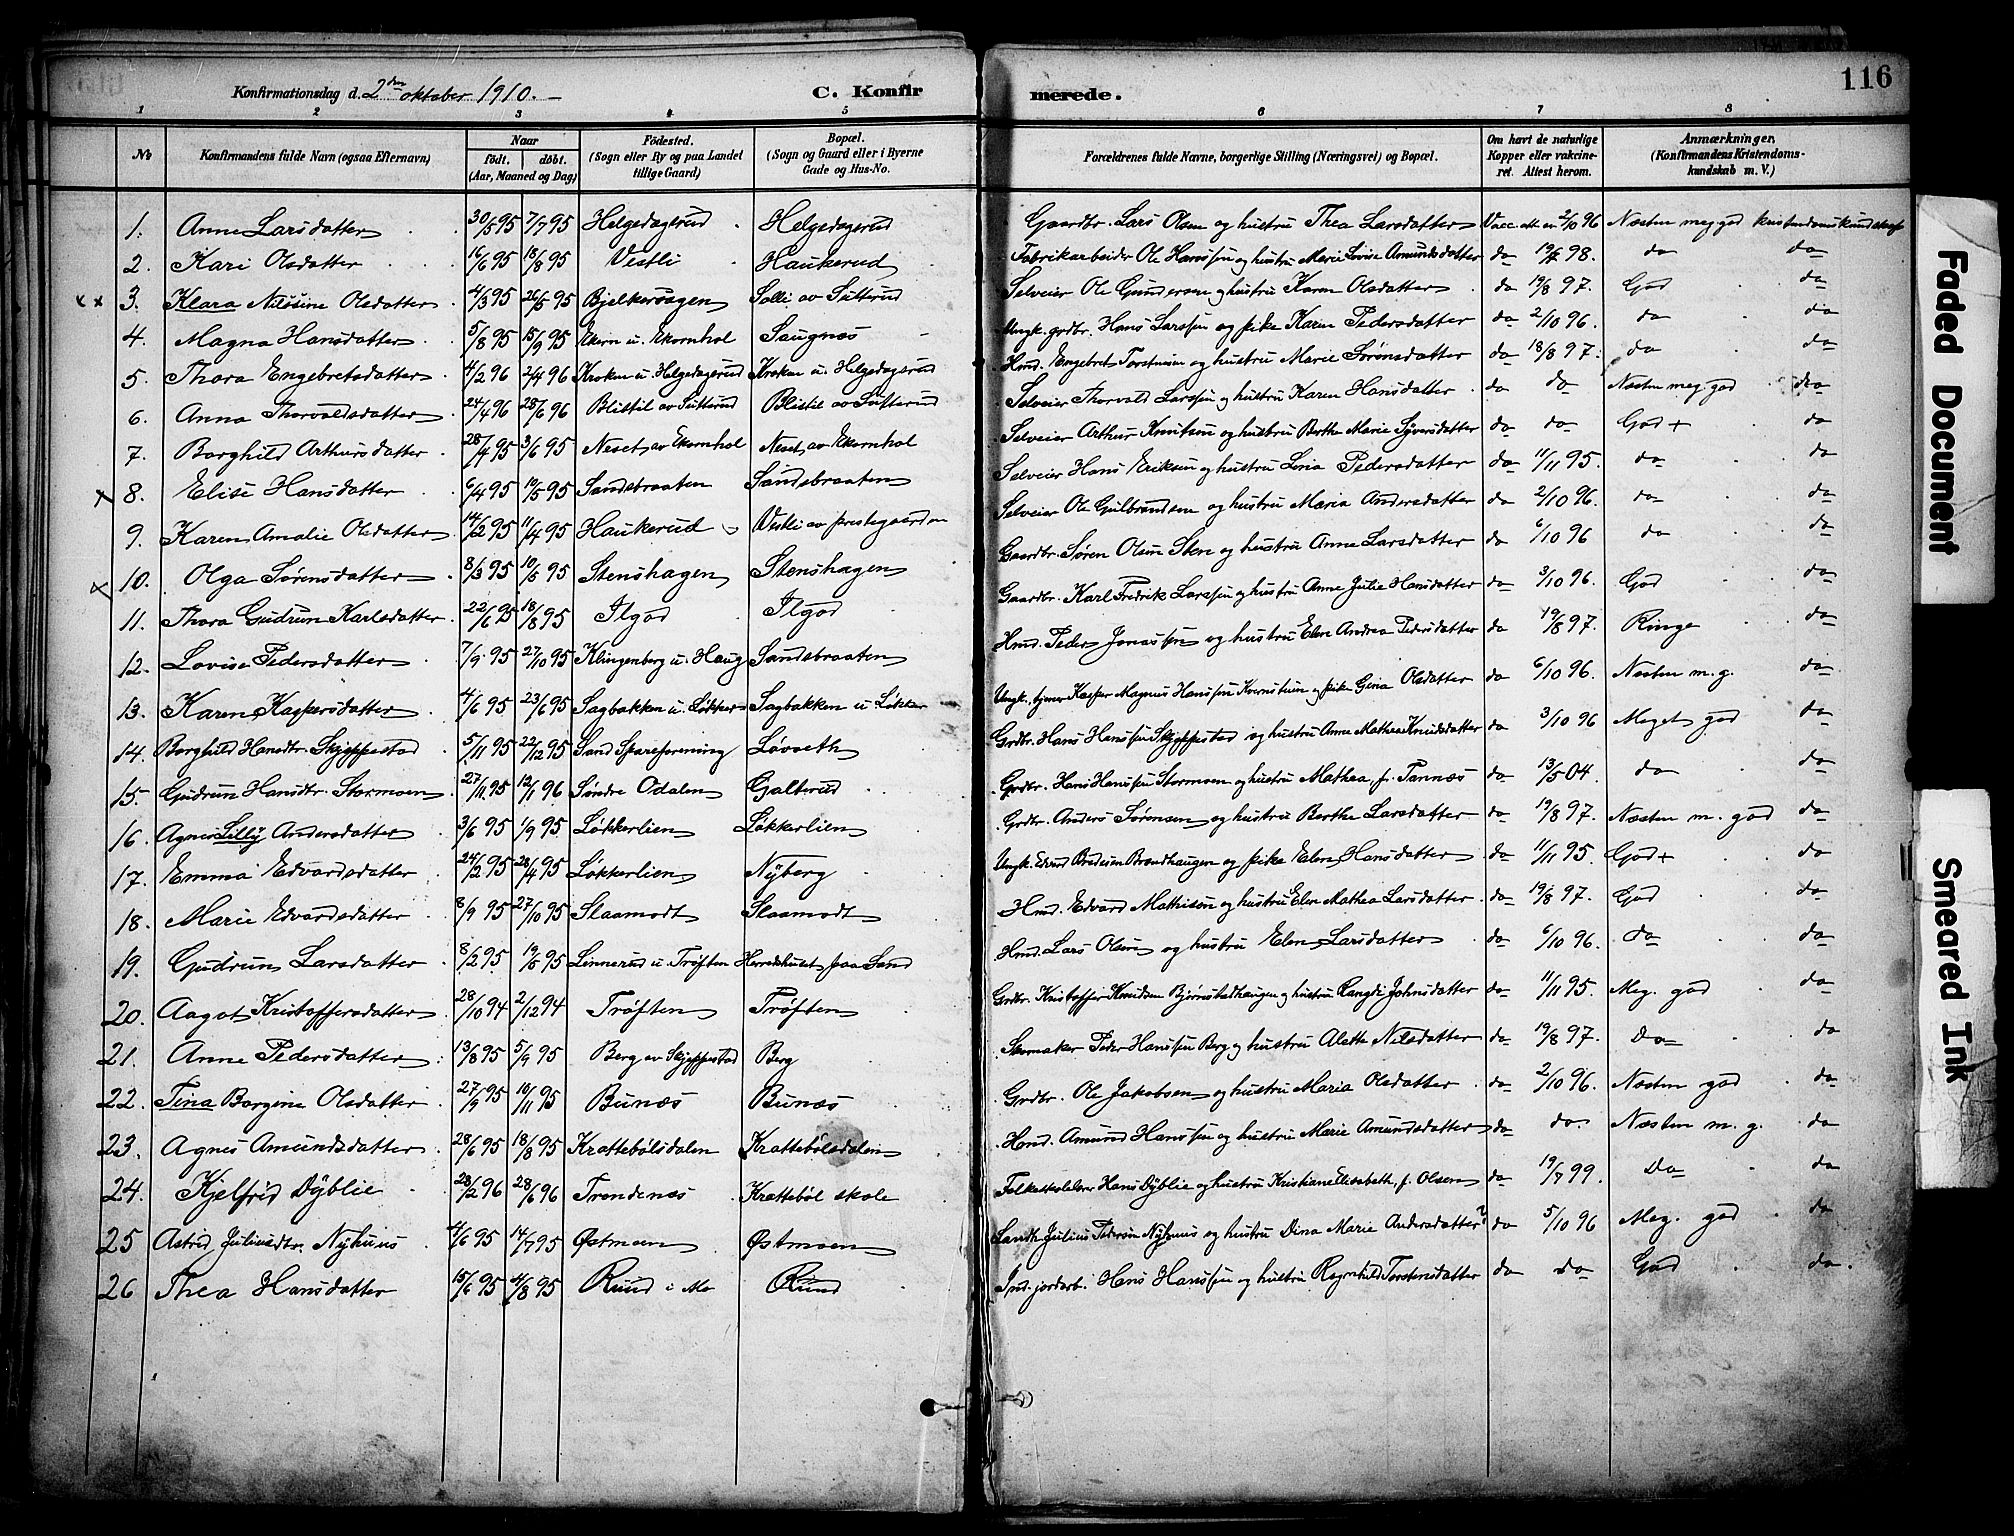 116
Konfirmationsdag d. 2den oktober 1910. C. Konfirmerede.
1 2 3 4 5 6 7 8
No Konfirmandens fulde Navn (ogsaa Efternavn) Naar födt. döbt. (Aar, Maaned og Dag) Födested. (Sogn eller By og paa Landet tillige Gaard) Bopæl. (Sogn og Gaard eller i Byerne Gade og Hus-No. Forældrenes fulde Navne, borgerlige Stilling (Næringsvei) og Bopæl. Om havt de naturlige Kopper eller vakcineret. Attest herom. Anmærkninger. (Konfirmandens Kristendomskundskab m. V.)
1. Anne Larsdatter 30/5 95 7/7 95 Helgedagsrud Helgedagsrud Gaardbr. Lars Olsen og hustru Thea Larsdatter Vacc. att. en 2/10 96 Næsten meg. god kristendomskundskab
2. Kari Olsdatter 16/6 95 18/8 95 Vestli Haukerud Fabrikarbeider Ole Hanssen og hustru Marie Lovise Amundsdatter do 19/7 98. do do
xx 3. Klara Nilsine Olsdatter 4/3 95 26/5 95 Bjelkersagen Solli av Sætterud Selveier Ole Gundersen og hustru Karen Olsdatter do 19/8 97. God do
4. Magna Hansdatter 5/8 95 15/9 95 Ekern u. Ekornhol Saugnæs Ungk. grdbr. Hans Larssen og pike Karen Pedersdatter do 2/10 96. do do
5. Thora Engebretsdatter 4/2 96 2/4 96 Kroken u. Helgedagsrud Kroken u. Helgedagsrud Hmd. Engebret Torstensen og hustru Marie Sørensdatter do 18/8 97. do do
6. Anna Thorvaldsdatter 24/4 96 28/6 96 Blistil av Sætterud Blistil av Sætterud Selveier Thorvald Larssen og hustru Karen Hansdatter do do Næsten meg. god do
7. Borghild Arthursdatter 28/4 95 3/6 95 Neset av Ekornhol Neset av Ekornhol Selveier Arthur Knutsen og hustru Berthe Marie Syversdatter do do God + do
x 8. Elise Hansdatter 6/4 95 19/5 95 Sandsbraaten Sandsbraaten Selveier Hans Eriksen og hustru Lovia Pedersdatter do 11/11 95. do do
9. Karen Amalie Olsdatter 14/2 95 11/4 95 Haukerud Vestli av prestegaarden Selveier Ole Gulbrandsen og hustru Maria Andersdatter do 2/10 96. do do
x 10. Olga Sørensdatter 8/3 95 10/5 95 Stenshagen Stenshagen Gaardbr. Søren Olsen Sten og hustru Anne Larsdatter do 6/10 96 do do
11. Thora Gudrun Karlsdatter 22/6 95 18/8 95 Ilgod Ilgod Gaardbr. Karl Fredrik Larssen og hustru Anne Julie Hansdatter do 3/10 96. God do
12. Lovise Pedersdatter 7/9 95 27/10 95 Klingenberg u. Haug Sandsbraaten Hmd. Peder Jonassen og hustru Elen Andrea Pedersdatter do 19/8 97. Ringe do
13. Karen Kaspersdatter 4/6 95 23/6 95 Sagbakken u. Løkker Sagbakken u Løkker Ungk. tjener Kasper Magnus Hanssen Kvernstuen og pike Gina Olsdatter do 6/10 96. Næsten m. g. do
14. Borghild Hansdtr. Skjeppestad 5/11 95 22/12 95 Sand Spareforening Løvseth Grdbr. Hans Hanssen Skjeppestad og hustru Anne Mathea Knudsdatter do 3/10 96 Meget god do
15. Gudrun Hansdtr. Stormoen 27/11 95 12/1 96 Søndre Odalen Galterud Grdbr. Hans Hanssen Stormoen og hustru Mathea, f. Tannæs do 13/5 04. do do
16. Agnes Lilly Andersdatter 3/6 95 1/9 95 Løkkerlien Løkkerlien Grdbr. Anders Sørensen og hustru Berthe Larsdatter do 19/8 97. Næsten m. god do
17. Emma Edvardsdatter 24/2 95 28/4 95 Løkkerlien Nyberg Ungk. Edvard Bredesen Brandhaugen og pike Elen Hansdatter do 11/11 95. God + do
18. Marie Edvardsdatter 8/9 95 27/10 95 Slaamodt Slaamodt Hmd. Edvard Mathisen og hustru Elen Mathea Larsdatter do 19/8 97. God do
19. Gudrun Larsdatter 8/2 95 19/5 95 Linnerud u. Trøften Herredshuset paa Sand Hmd. Lars Olsen og hustru Elen Larsdatter do 6/10 96. do do
20. Aagot Kristoffersdatter 28/10 94 2/12 94 Trøften Trøften Grdbr. Kristoffer Knudsen Bjørnstadhaugen og hustru Rangdi Johnsdatter do 11/11 95. Meg. god do
21. Anne Pedersdatter 13/8 95 5/9 95 Berg av Skjeppestad Berg Skomaker Peder Hanssen Berg og hustru Alette Nilsdatter do 19/8 97. Do do
22. Tina Borgine Olsdatter 27/9 95 10/11 95 Bunæs Bunæs Grdbr. Ole Jakobsen og hustru Maria Olsdatter do 2/10 96. Næsten god do
23. Agnes Amundsdatter 28/6 95 18/8 95 Krattebølsdalen Krattebølsdalen Hmd. Amund Hanssen og hustru Marie Amundsdatter do do Næsten m. g. do
24. Kjelfrid Dyblie 28/2 96 28/6 96 Trondenæs Krattebøl skole Folkeskolelærer Hans Dyblie og hustru Kristiane Elisabeth, f. Olsen do 19/7 99. Do do
25 Astrid Juliusdtr. Nyhuus 4/6 95 14/7 95 Østmoen Østmoen Landh. Julius Pedersen Nyhuus og hustru Dina Marie Andersdatter? do 5/10 96 Meg. god do
26 Thea Hansdatter 15/6 95 4/8 95 Ruud i Mo Ruud Ind. jordarb. Hans Hanssen og hustru Ragnhild Torstensdatter do do God do.
Faded Document
Smeared Ink